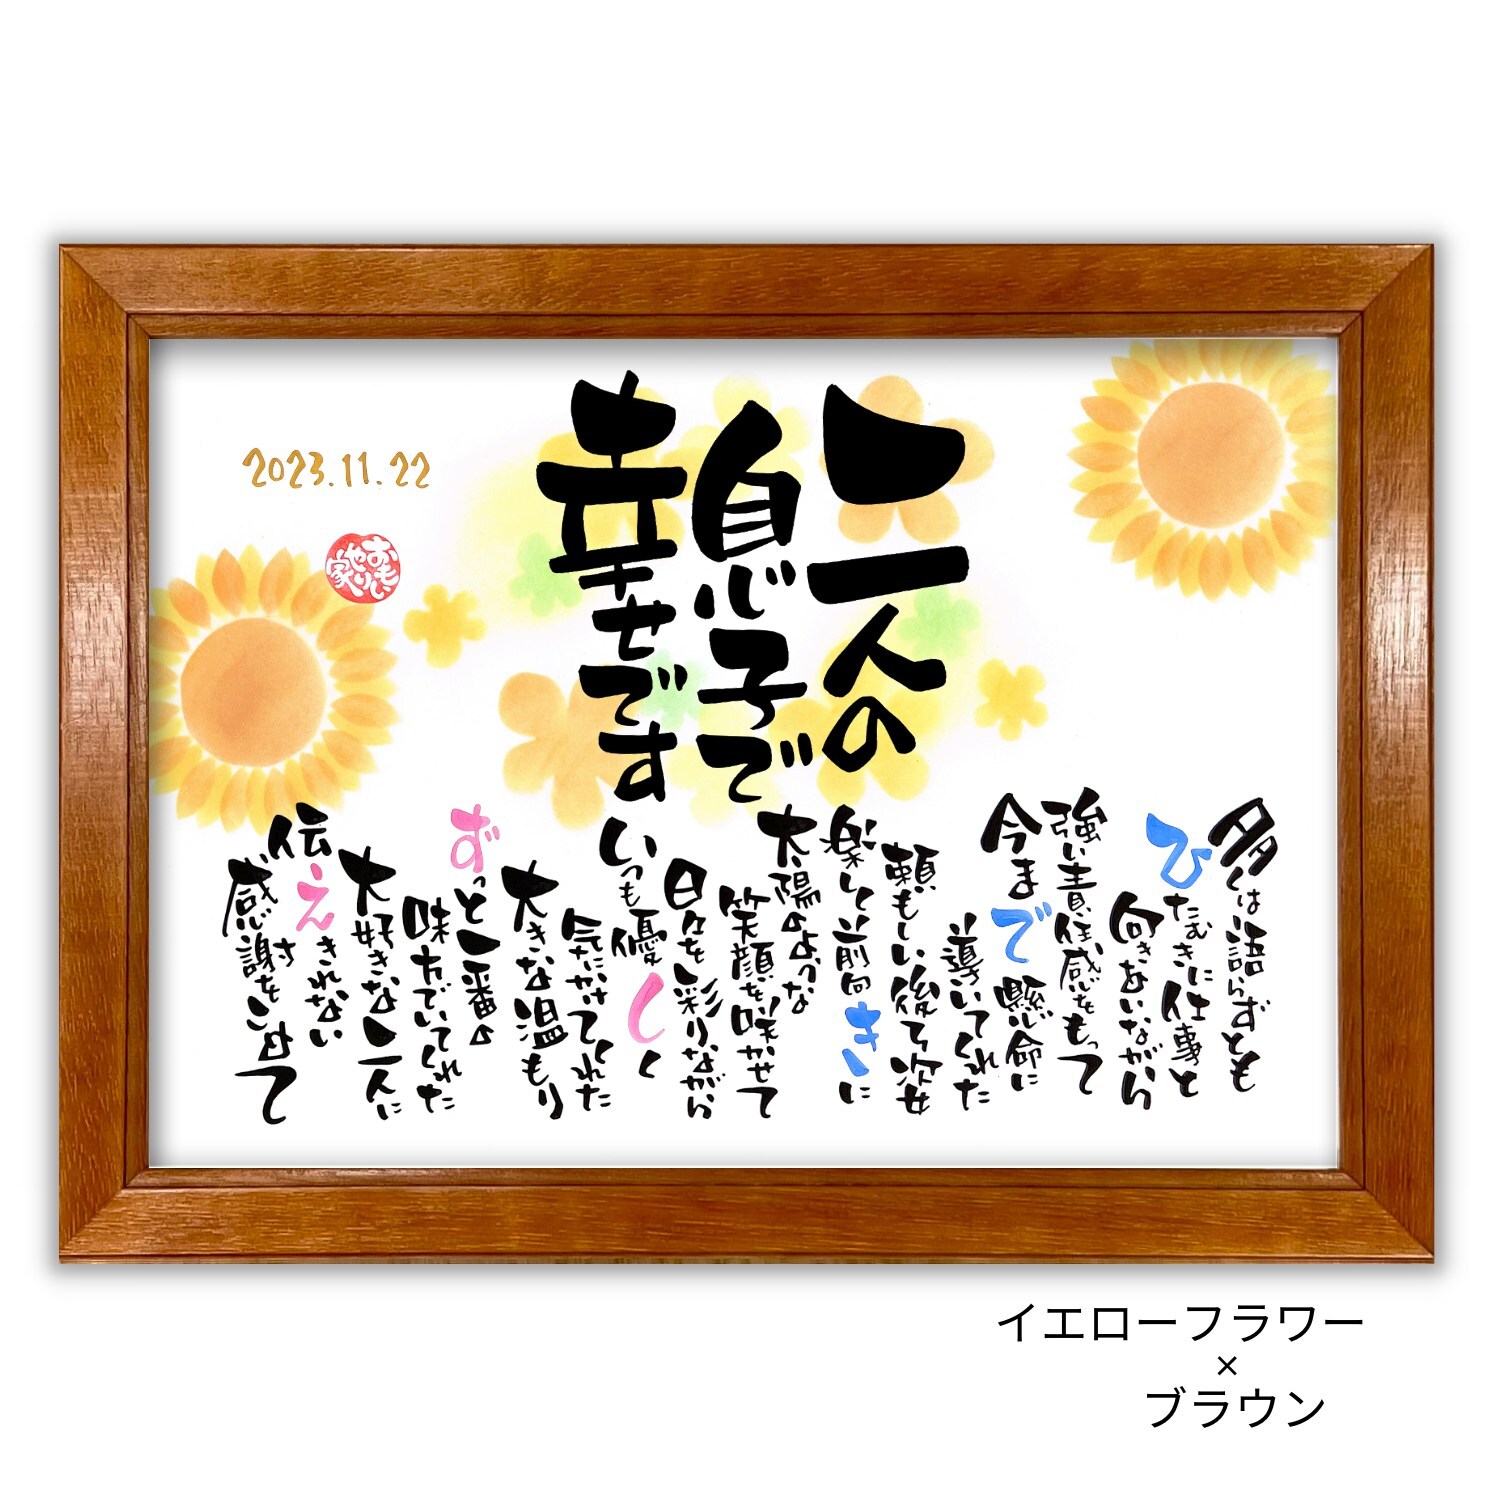 二人の
息子で
幸せです
多くは語らずとも
ひたむきに仕事と
向きあいながら
強い責任感をもって
今まで懸命に
導いてくれた
頼もしい後ろ姿
楽しく前向きに
太陽のような
笑顔を咲かせて
日々を彩りながら
いつも優しく
気にかけてくれた
大きな温もり
ずっと一番の
味方でいてくれた
大好きな二人に
伝えきれない
感謝をこめて
2023.11.22
おもいやり家
イエローフラワー
×
ブラウン